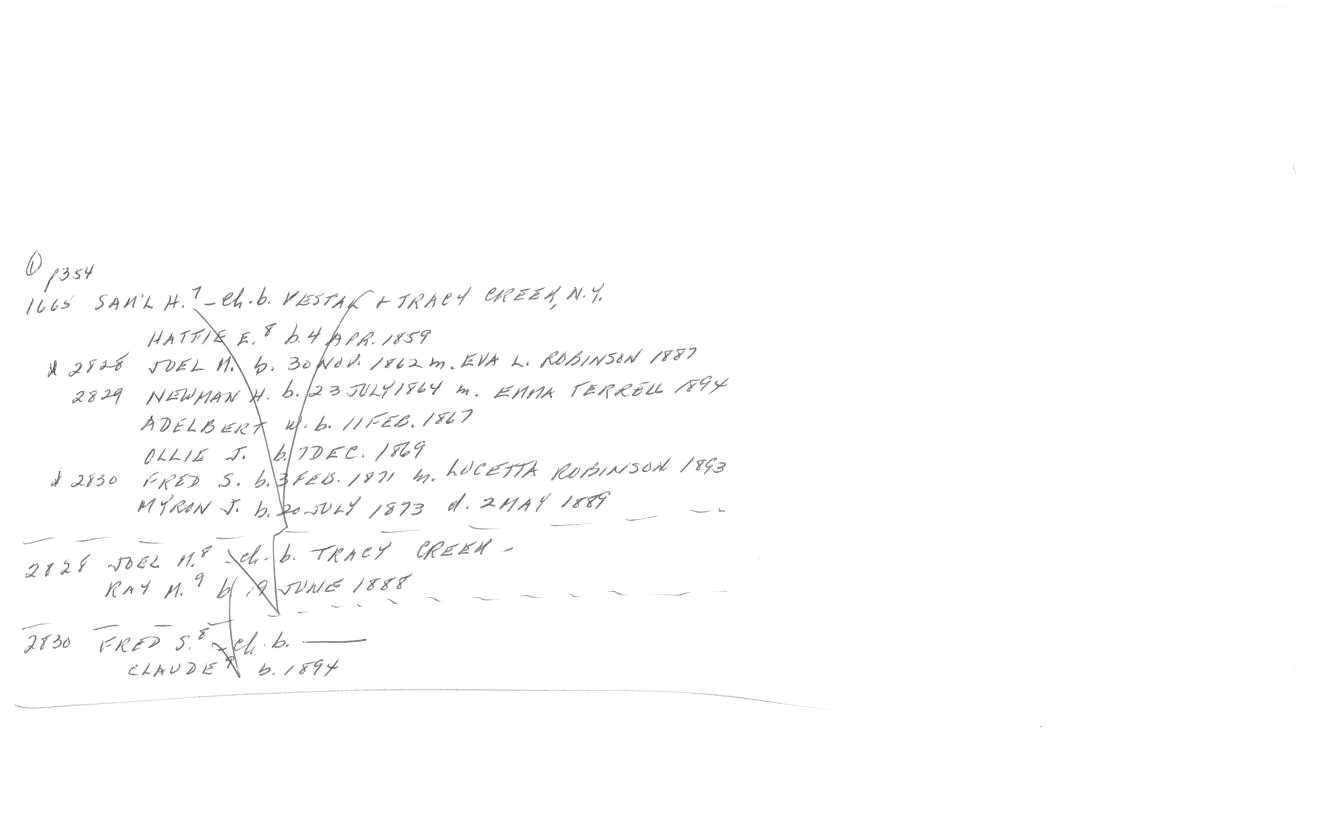 ① p354
1665 SAM'L H.⁷ - Ch. b. VESTAL + TRACY CREEK, N.Y.
HATTIE E.⁸ b. 4 APR. 1859
2828 JOEL M. b. 30 NOV. 1862 m. EVA L. ROBINSON 1887
2829 NEWMAN H. b. 23 JULY 1864 m. EMMA TERRELL 1894
ADELBERT W. b. 11 FEB. 1867
OLLIE J. b. 7 DEC. 1869
2830 FRED S. b. 3 FEB. 1871 m. LUCETTA ROBINSON 1893
MYRON J. b. 20 JULY 1873 d. 2 MAY 1889
2828 JOEL M.⁸ - Ch. b. TRACY CREEK -
RAY M.⁹ b. 19 JUNE 1888
2830 FRED S.⁸ - Ch. b. ——
CLAUDE⁹ b. 1894